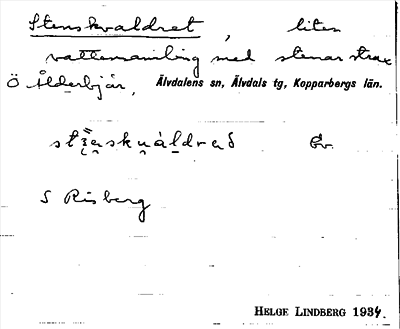 Stenskvaldret, liten
vattensamling med stenar strax
Ö Ålderbjär, Älvdalens sn, Älvdals tg, Kopparbergs län.
Ev.
S Risberg
HELGE LINDBERG 1934.